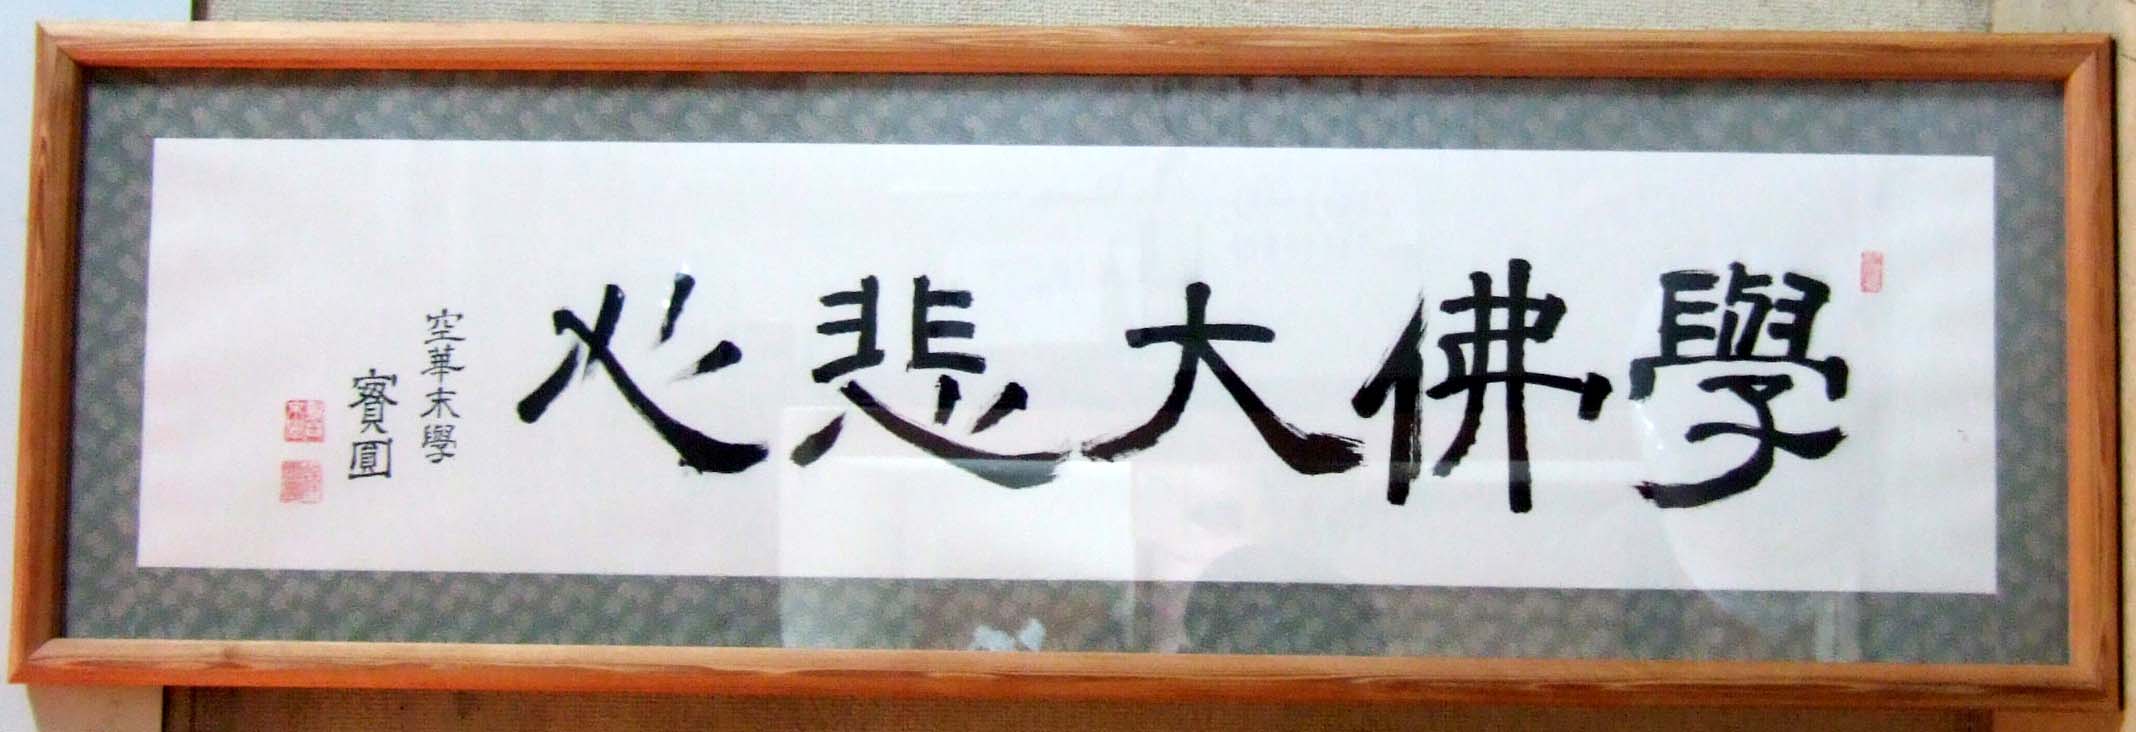 學佛大悲心
空華末學
寶圓